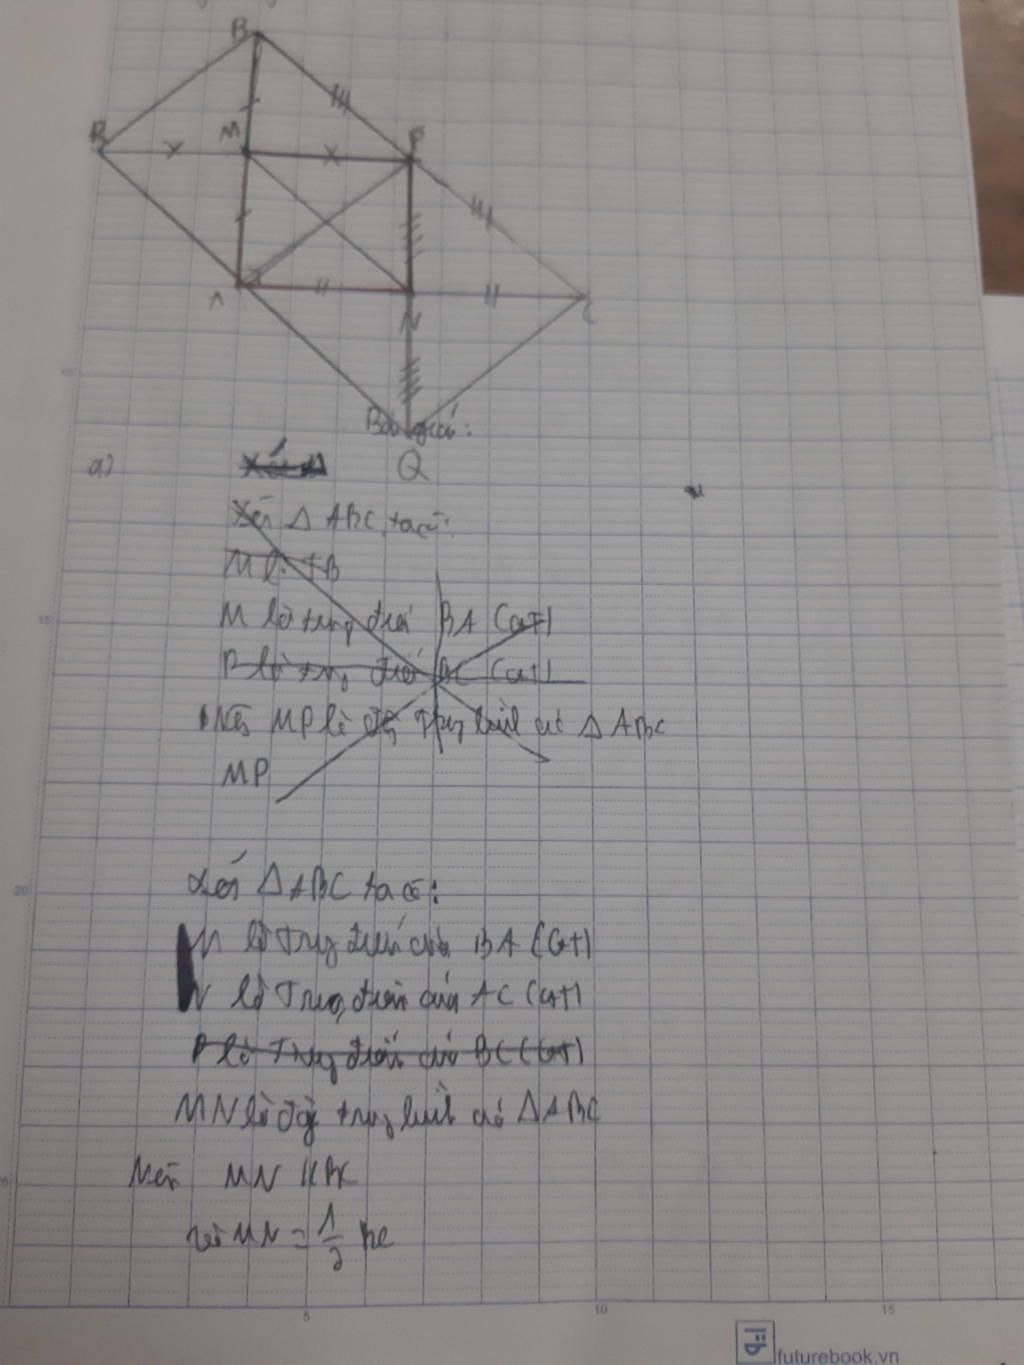 B
R M P
A N C
Bài giải:
a) Q
Xét Δ ABC, ta có:
M là TB
M là trung điểm BA (GT)
P là trung điểm BC (GT)
Nên MP là đg trung bình củ Δ ABC
MP
Xét Δ ABC ta có:
M là Trung điểm của BA (GT)
N là Trung điểm của AC (GT)
P là Trung điểm củ BC (GT)
MN là đg trung bình củ Δ ABC
Nên MN // BC
và MN = 1/2 BC
15
20
5 10 15
futurebook.vn